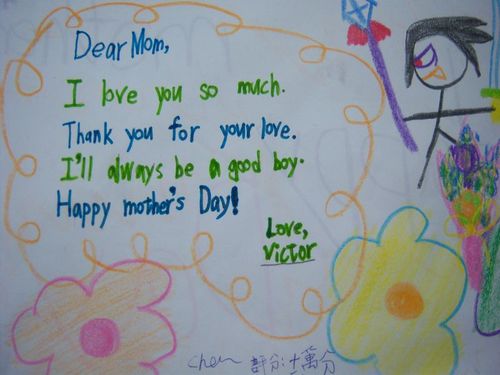 Dear Mom,
I love you so much.
Thank you for your love.
I'll always be a good boy.
Happy mother's Day!
Love,
Victor
chen 評分:十萬分